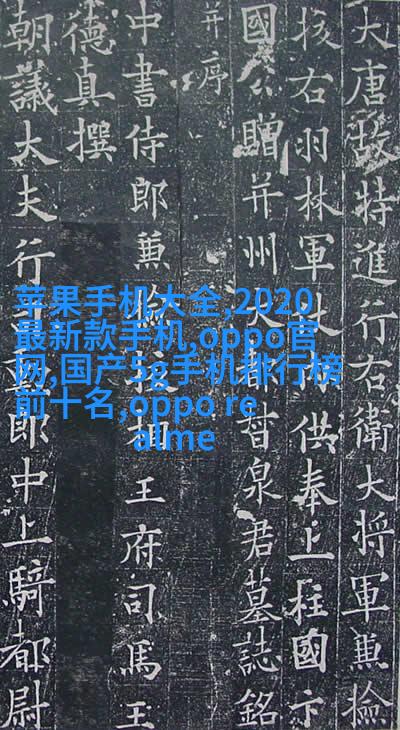 大唐故特進行右衛大将軍兼撿
挍右羽林軍供奉上柱國卞
國公贈并州大都督泉君墓誌銘
并序
中書侍郎兼相王府司馬王
德真撰
朝議大夫行勳郎中上騎都尉
苹果手机大全,2020
最新款手机,oppo官
网,国产5g手机排行榜
前十名,oppo re
alme